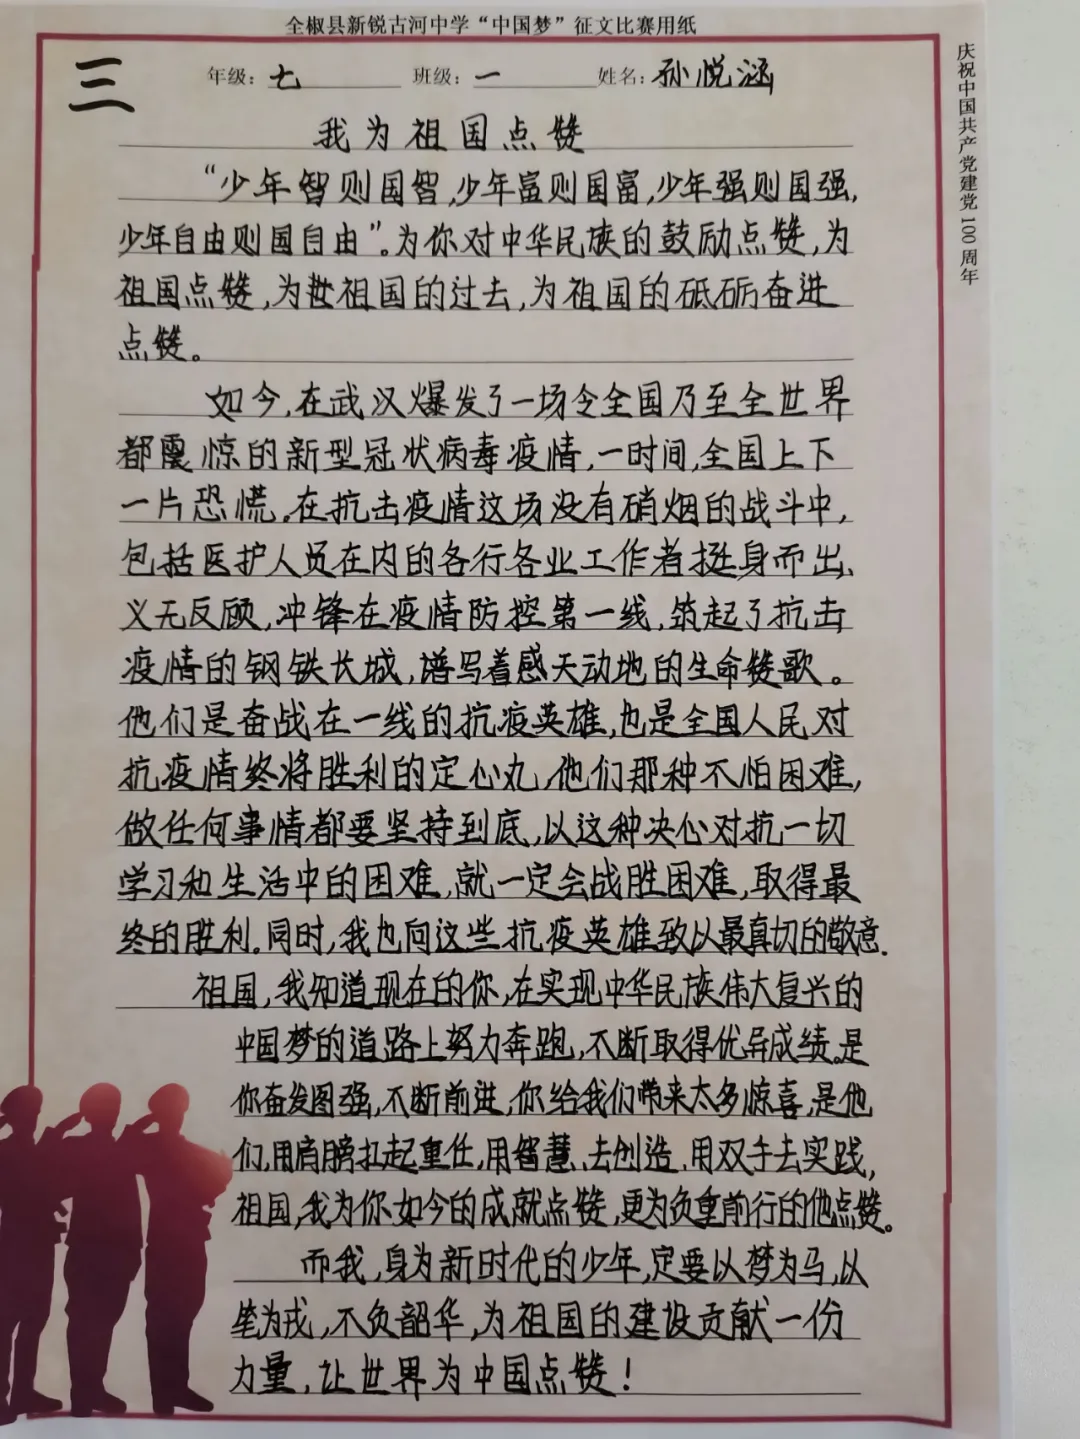 全椒县新锐古河中学“中国梦”征文比赛用纸
庆祝中国共产党建党100周年
三
年级：七 班级：一 姓名：孙悦涵
我为祖国点赞
“少年智则国智，少年富则国富，少年强则国强，
少年自由则国自由”。为你对中华民族的鼓励点赞，为
祖国点赞，为祖国的过去，为祖国的砥砺奋进
点赞。
如今，在武汉爆发了一场令全国乃至全世界
都震惊的新型冠状病毒疫情，一时间，全国上下
一片恐慌。在抗击疫情这场没有硝烟的战斗中，
包括医护人员在内的各行各业工作者挺身而出、
义无反顾，冲锋在疫情防控第一线，筑起了抗击
疫情的钢铁长城，谱写着感天动地的生命赞歌。
他们是奋战在一线的抗疫英雄，也是全国人民对
抗疫情终将胜利的定心丸，他们那种不怕困难，
做任何事情都要坚持到底，以这种决心对抗一切
学习和生活中的困难，就一定会战胜困难，取得最
终的胜利。同时，我也向这些抗疫英雄致以最真切的敬意.
祖国，我知道现在的你，在实现中华民族伟大复兴的
中国梦的道路上努力奔跑，不断取得优异成绩。是
你奋发图强，不断前进，你给我们带来太多惊喜，是他
们，用肩膀扛起重任，用智慧、去创造、用双手去实践，
祖国，我为你如今的成就点赞，更为负重前行的他点赞。
而我，身为新时代的少年，定要以梦为马，以
笔为戎，不负韶华，为祖国的建设贡献一份
力量，让世界为中国点赞！